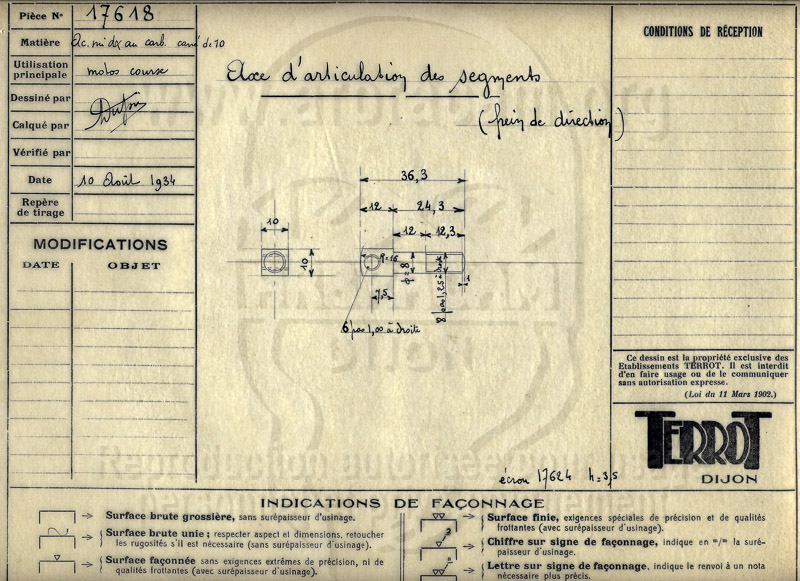 Pièce No 17618
Matière Ac. mi dx au carb. carré de 10
Utilisation principale motos course
Dessiné par
Calqué par
Vérifié par
Date 10 Août 1934
Repère de tirage
MODIFICATIONS
DATE OBJET
Axe d'articulation des segments
(frein de direction)
36,3
12 24,3
12 12,3
10
10
R=15
8
7,5
8 pas 1,25 à droite
1
6 pas 1,00 à droite
écrou 17624 h=3,5
CONDITIONS DE RÉCEPTION
Ce dessin est la propriété exclusive des
Etablissements TERROT. Il est interdit
d'en faire usage ou de le communiquer
sans autorisation expresse.
(Loi du 11 Mars 1902.)
TERROT
DIJON
INDICATIONS DE FAÇONNAGE
Surface brute grossière, sans surépaisseur d'usinage.
Surface brute unie ; respecter aspect et dimensions, retoucher
les rugosités s'il est nécessaire (sans surépaisseur d'usinage).
Surface façonnée sans exigences extrêmes de précision, ni de
qualités frottantes (avec surépaisseur d'usinage).
Surface finie, exigences spéciales de précision et de qualités
frottantes (avec surépaisseur d'usinage).
Chiffre sur signe de façonnage, indique en m/m la suré-
paisseur d'usinage.
Lettre sur signe de façonnage, indique le renvoi à un nota
nécessaire plus précis.